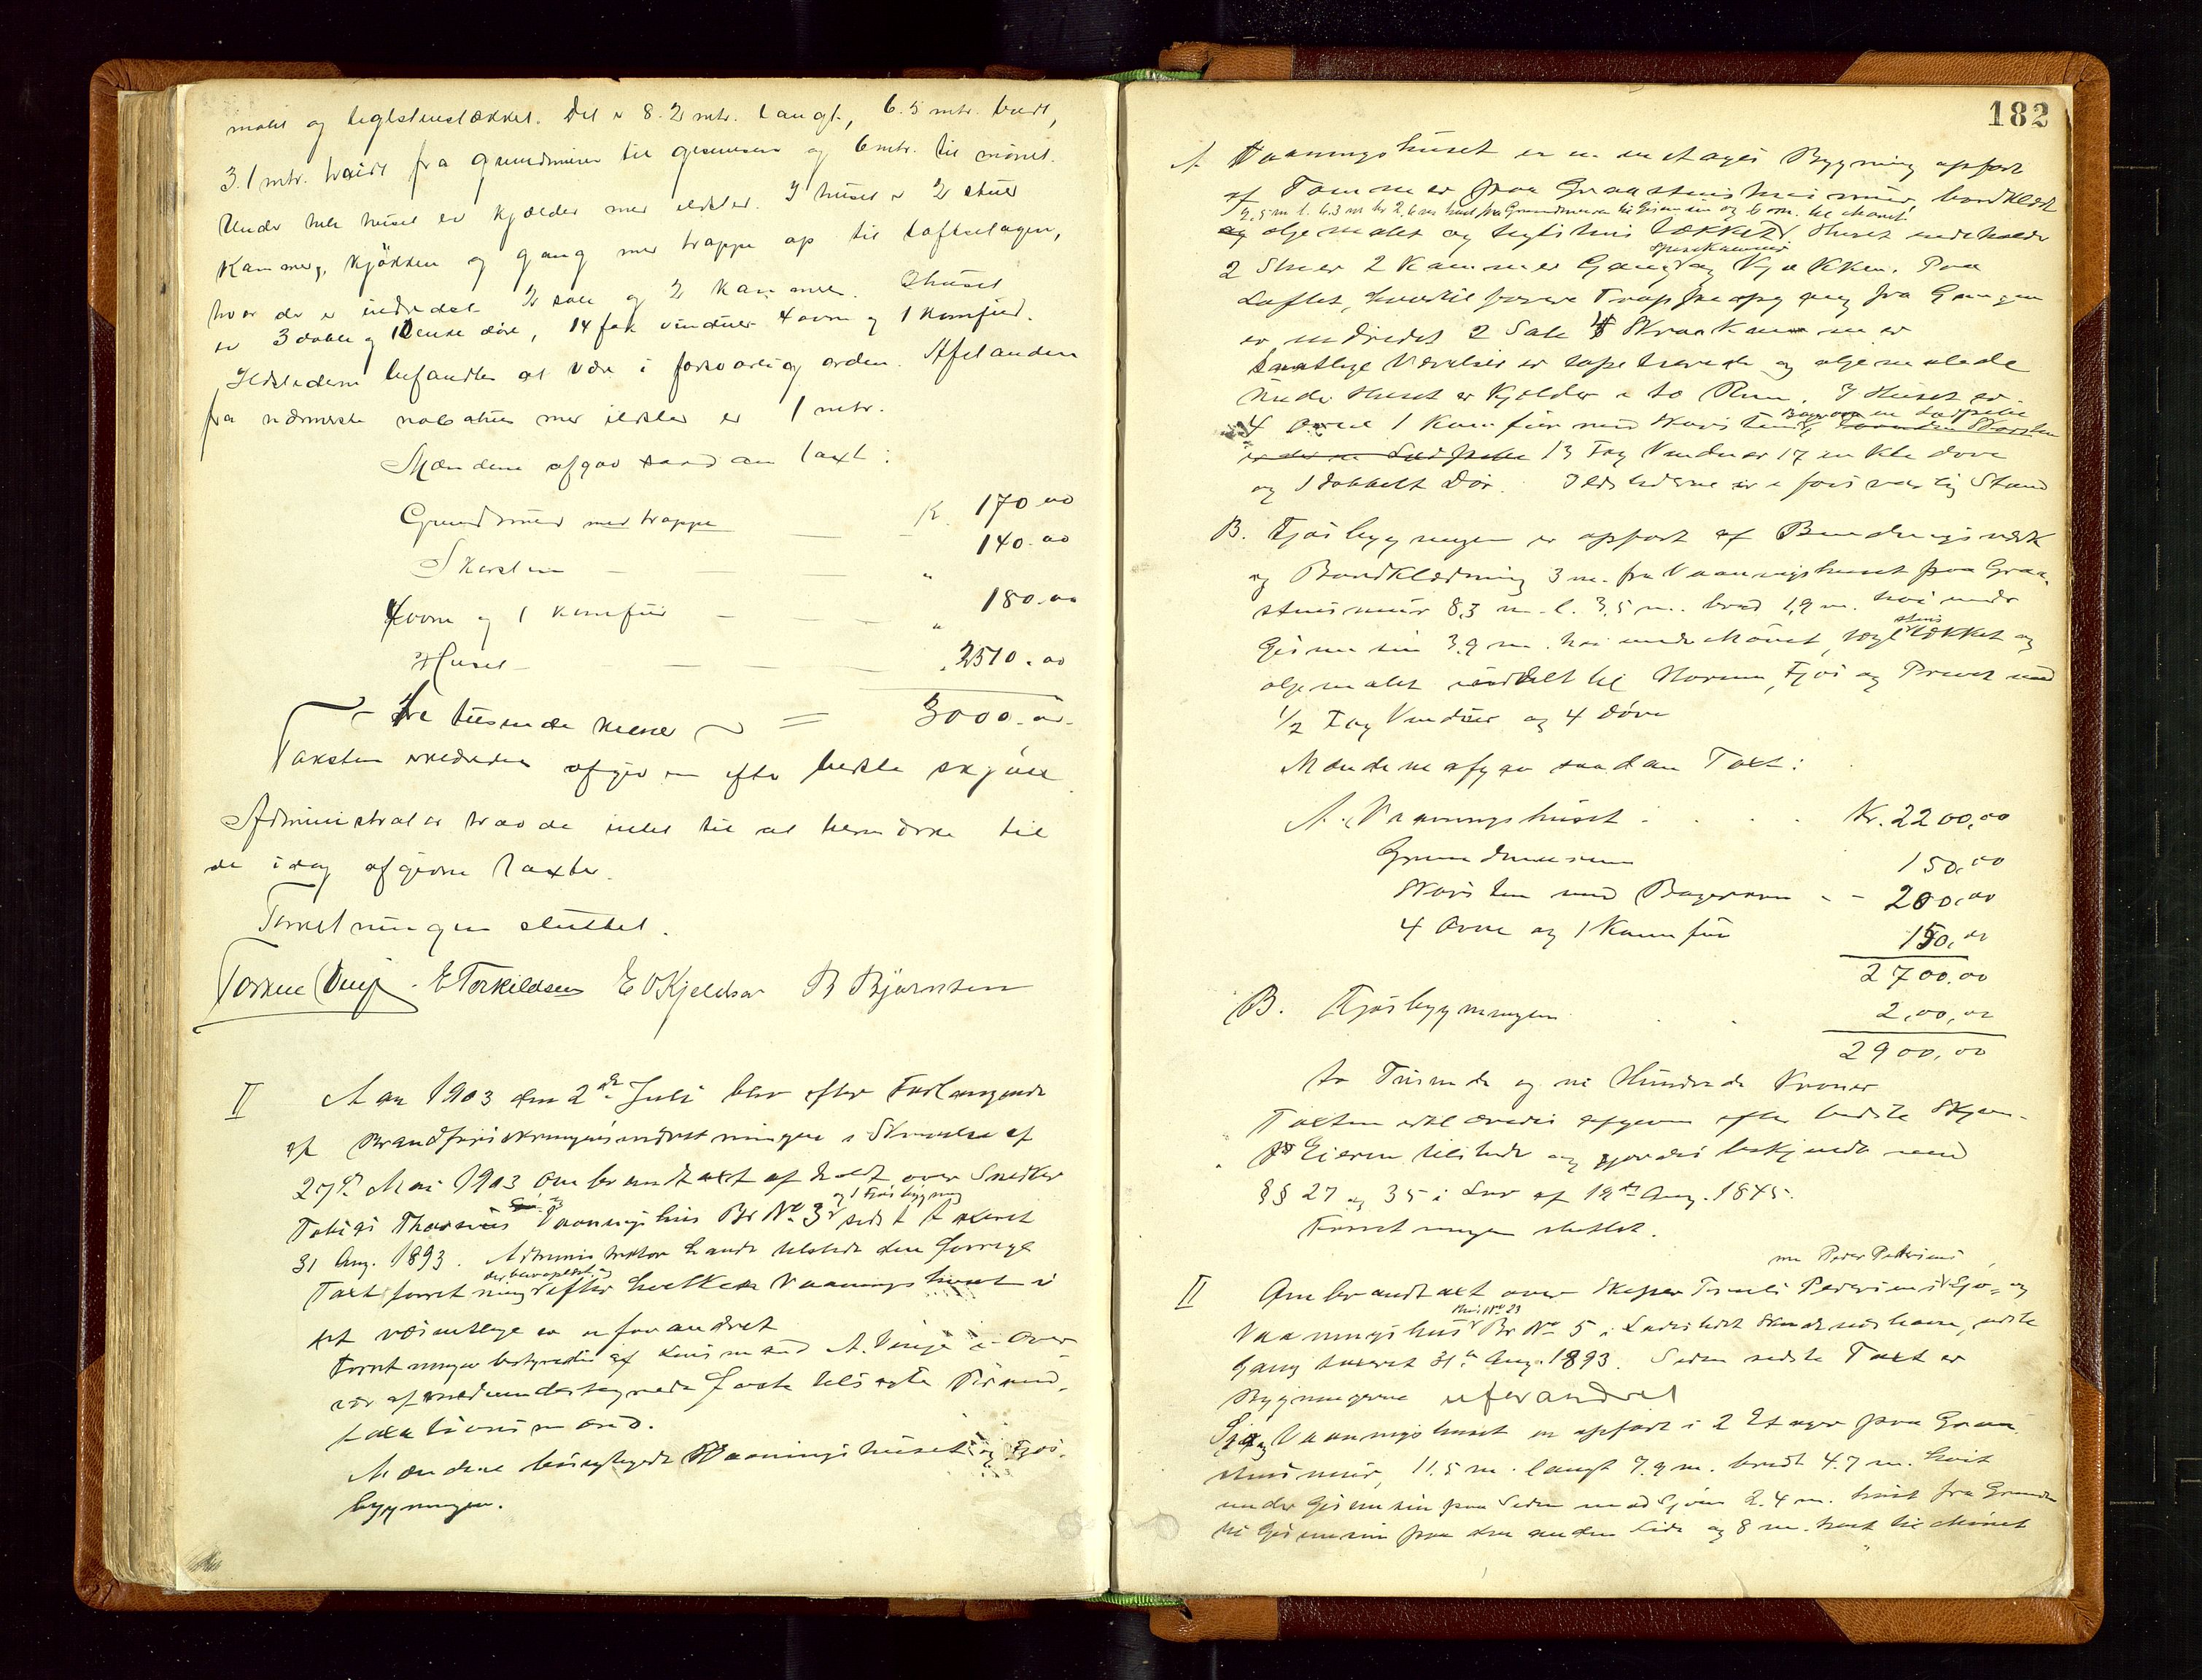 malet og teglstenstækket. Det er 8.2 mtr. langt, 6.5 mtr. bredt,
3.1 mtr. høidt fra grundmuren til gesimsen og 6 mtr. til mönet.
Under hele huset er kjælder med ildsted. I huset er 2 stuer
Kammers, kjökken og gang med trappe op til loftsetagen,
hvor der er indredet 2 sale og 2 kammer. I huset
er 3 doble og 10 enkle döre, 14 fak vinduer 4 ovne og 1 komfur.
Ildstederne befandtes at være i forsvarlig orden. Afstanden
fra nærmeste nabohus med ildsted er 1 mtr.
Mændene afgav saadan taxt:
Grundmur med trappe K. 170.00
Skorsten " 140.00
4 ovne og 1 komfur " 180.00
Huset 2510.00
Tre tusende kroner = 3000.00
Taksten erklæredes afgiven efter bedste skjön
Administrator havde intet til at bemærke til
de idag afgivne taxter.
Forretningen sluttet.
E Torkildsen E O Kjeldsen B Bjørnsen
II Aar 1903 den 2de Juli blev efter Forlangende
af Brandforsikringsindretningen i Skrivelse af
27de Mai 1903 Ombrandtaxt afholdt over Snedker
Tobias Vaaningshus Br No. 3 og 1 Fjøsbygning sidst taxeret
31 Aug. 1893. Administrator havde tilstede den forrige
Taxtforretning efter hvilken Vaaningshuset i
det væsentlige er uforandret
Forretningen bestyredes af Lensmand A. Vinje i Over-
vær af medundertegnede faste edsvorne
taxationsmænd.
Mændene besigtigede Vaaningshuset og Fjøs-
bygningen.
182
A Vaaningshuset er en enetages Bygning opført
af Tømmer paa Graastensmur, bordklædt
9,5 m l. 6.3 m br 2,6 m høit fra Grundmuren til Gesimsen og 6 m. til Mønet
og oljemalet og teglstens tækket Huset indeholder
Spisekammer
2 Stuer 2 Kammer Gang og Kjøkken. Paa
Loftet, hvortil fører Trappeopgang fra Gangen
er indredet 2 Sale 4 Skraakammer
Samtlige Værelser er tapetserede og oljemalede
Under Huset er Kjelder i to Rum. I Huset er
4 Ovne 1 Komfur med Skorsten Bagerovn
13 Fag Vinduer 17 enkle døre
og 1 dobbelt Dør. Ildstederne er i forsvarlig Stand
B. Fjøsbygningen er opført af Bindingsværk
og Bordklædning 3 m. fra Vaaningshuset paa Graa-
stensmur 8,3 m. l. 3,5 m. bred 1,9 m. høi under
Gesimsen 3.9 m. høi under Mønet, teglstens tækket og
oljemalet inddelt til Fjøs og Privet med
1/2 Fag Vinduer og 4 døre
Mændene afgav saadan Taxt:
A. Vaaningshuset Kr. 2200,00
Grundmuren 150,00
Skorsten med Bagerovn - - 200,00
4 Ovne og 1 Komfur 150,00
2700,00
B. Fjøsbygningen 2,00,00
2900,00
to Tusinde og ni Hundrede Kroner
Taxten erklæredes afgiven efter bedste Skjøn.
Eieren tilstede og gjordes bekjendt med
§§ 27 og 35 i Lov af 19de Aug. 1845.
Forretningen sluttet.
nu Peder Pedersens
II Ombrandtaxt over Skipper Pedersens Sjø- og
Hus No 23
Vaaningshus Br No 5 i Ladestedet Skudeneshavn, sidste
Gang taxeret 31te Aug. 1893. Siden sidste Taxt er
Bygningerne uforandret
Sjø og Vaaningshuset er opført i 2 Etager paa Graa-
stensmur, 11.5 m. langt 7.9 m. bredt 4.7 m. høit
under Gesimsen paa Siden mod Sjøen 2.4 m. høit fra Grunden
til Gesimsen paa den anden Side og 8 m. høit til Mønet